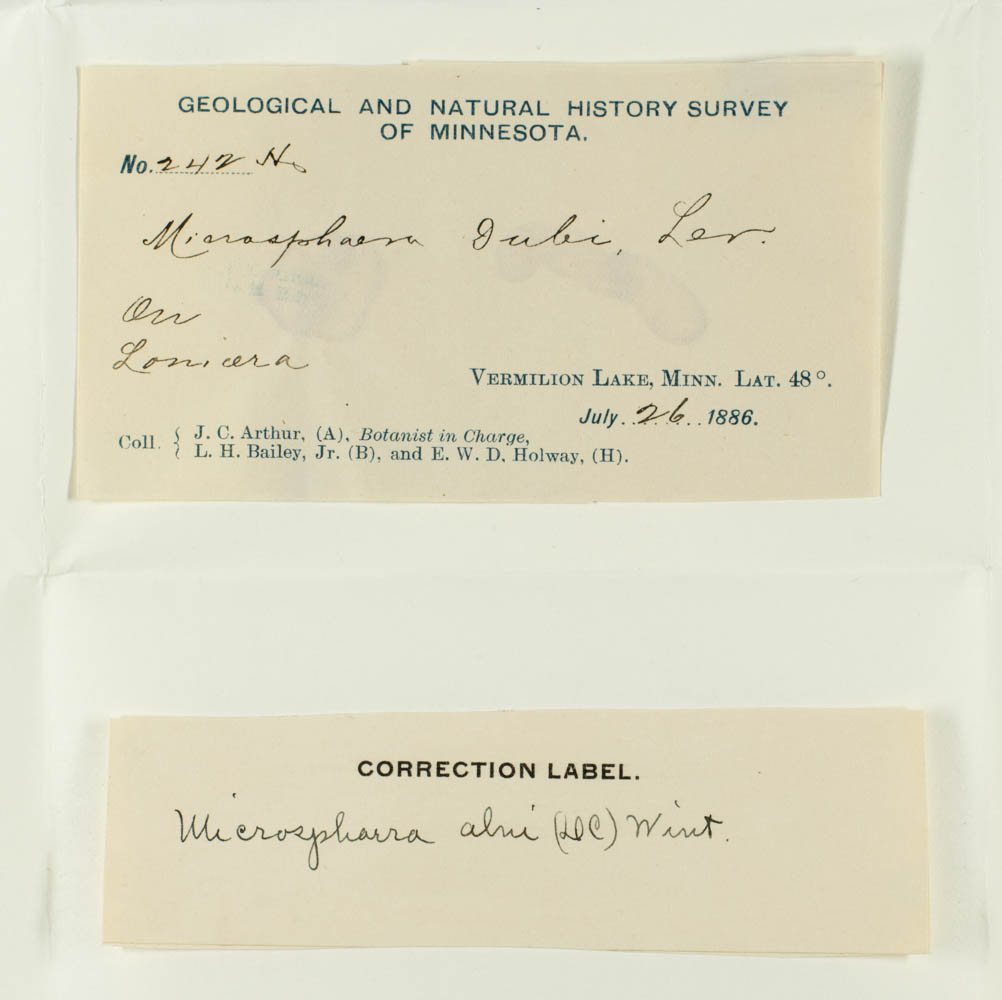 GEOLOGICAL AND NATURAL HISTORY SURVEY
OF MINNESOTA.
No. 242 H.
Microsphaera Dubi, Lev.
On
Lonicera
VERMILION LAKE, MINN. LAT. 48°.
July 26 1886.
Coll. { J. C. Arthur, (A), Botanist in Charge,
L. H. Bailey, Jr. (B), and E. W. D. Holway, (H).
CORRECTION LABEL.
Microsphaera alni (DC) Wint.